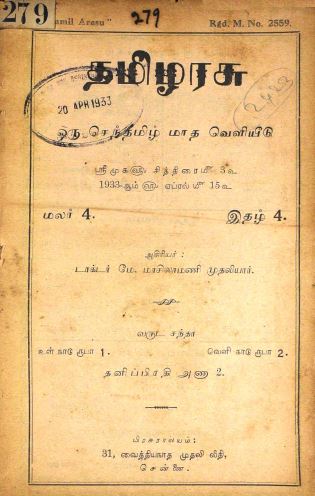 279
amil Arasu"
279
Rgd. M. No. 2559.
தமிழரசு
20 APR 1933
ஒரு செந்தமிழ் மாத வெளியீடு
ஸ்ரீமுக௵ சித்திரை௴ 3௳
1933-ஆம்௵ ஏப்ரல்௴ 15௳
மலர் 4.
இதழ் 4.
ஆசிரியர் :
டாக்டர் மே. மாசிலாமணி முதலியார்.
வருட சந்தா
உள் நாடு ரூபா 1.
வெளி நாடு ரூபா 2.
தனிப்பிரதி அணா 2.
பிரசுராலயம்:
31, வைத்தியநாத முதலி வீதி,
சென்னை.